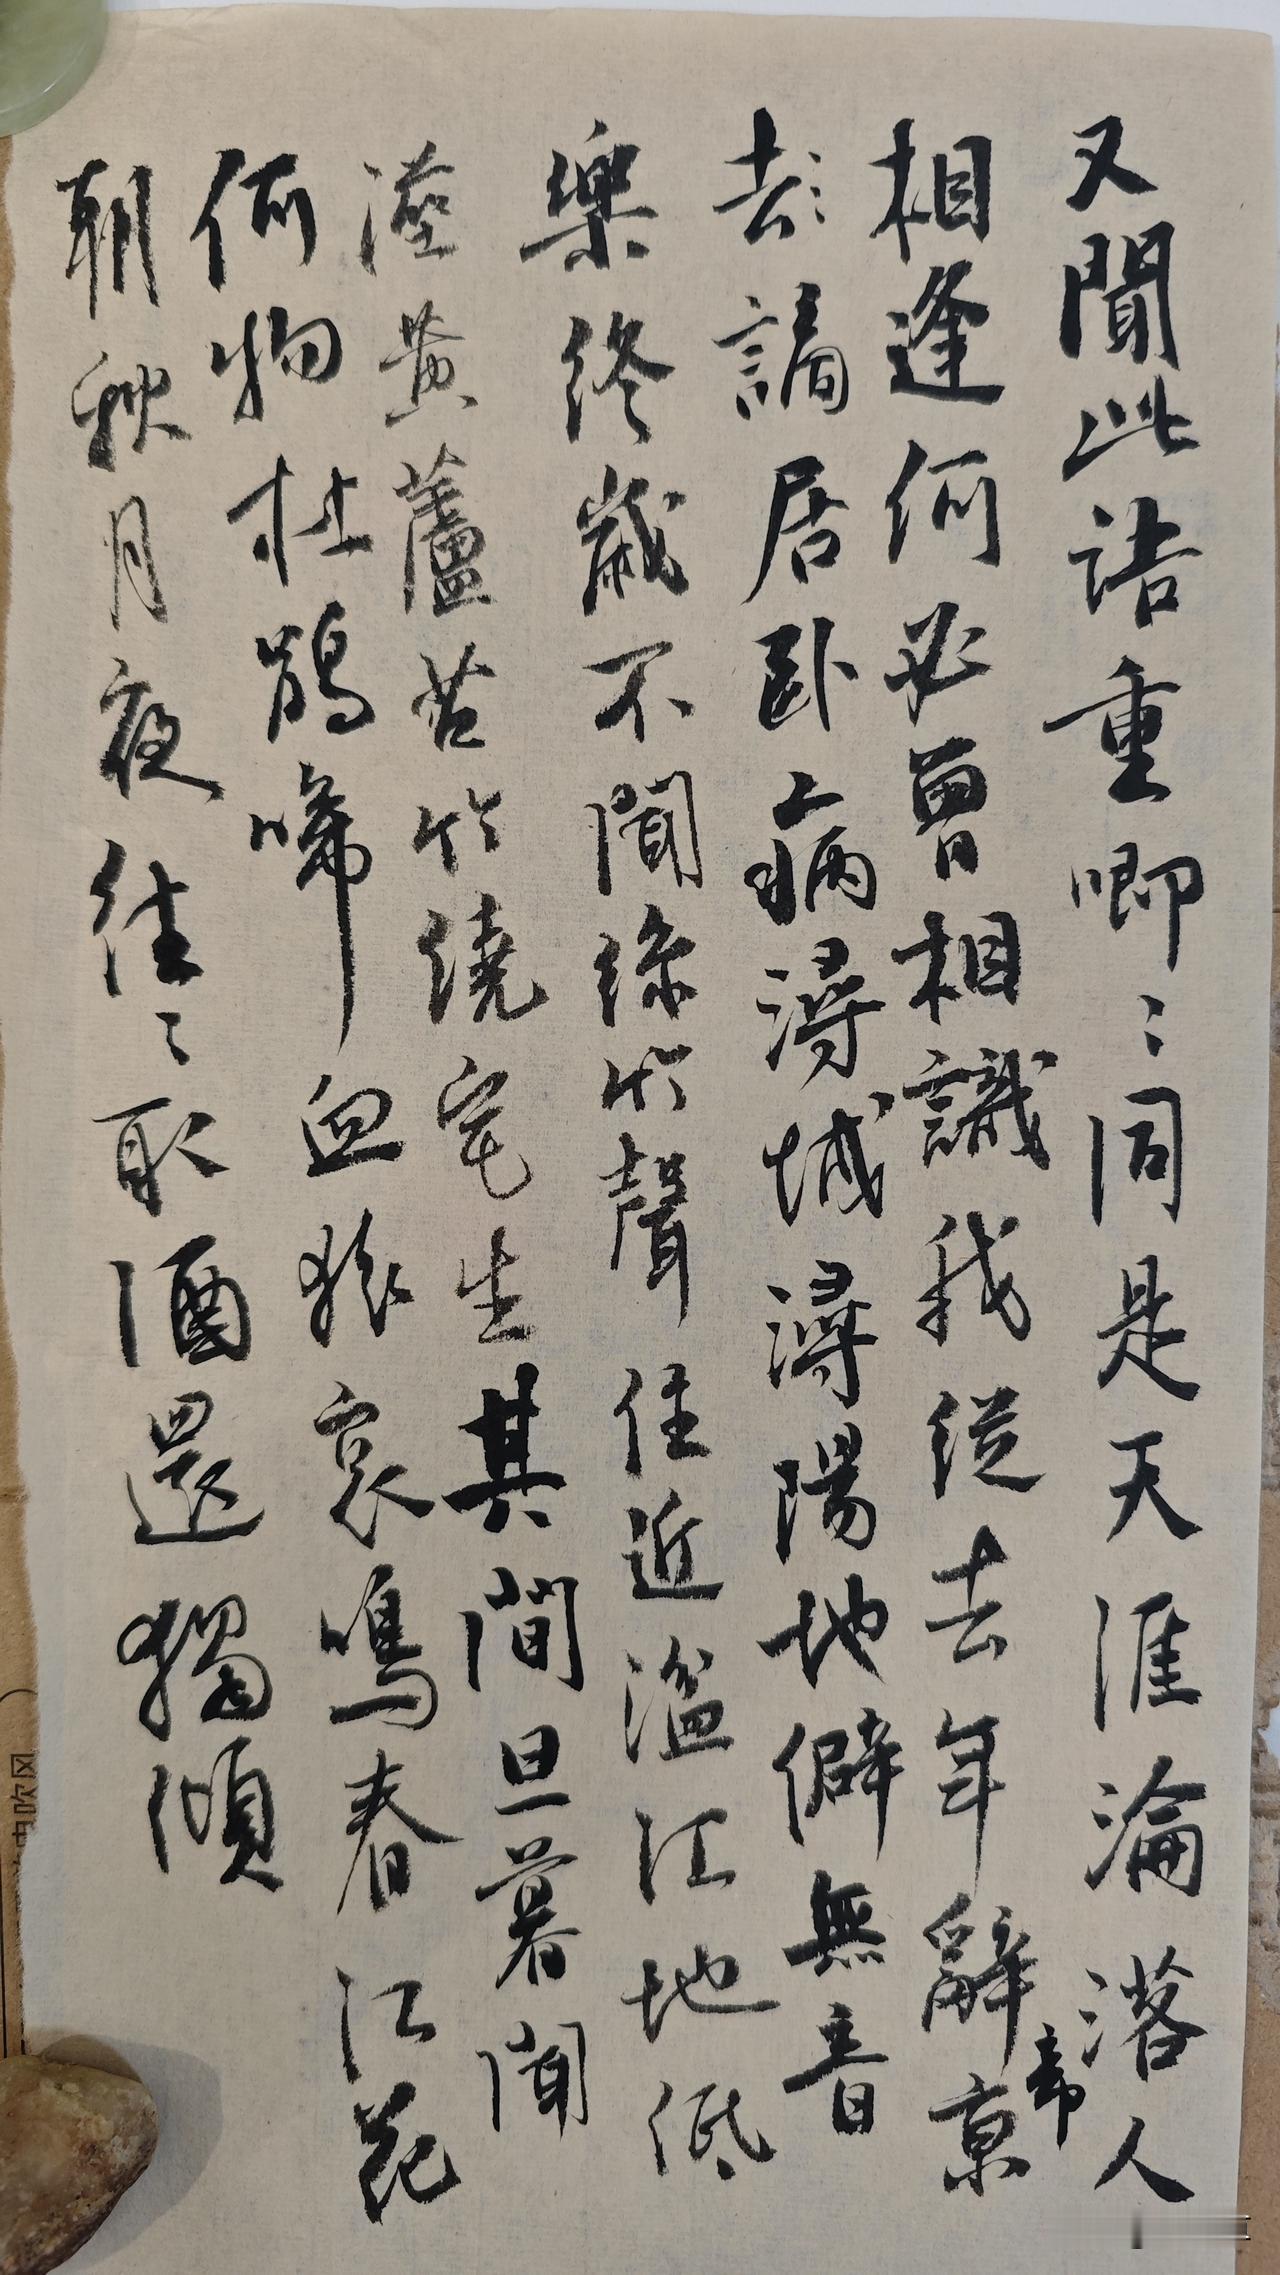 又聞此語重唧〻同是天涯淪落人
相逢何必曾相識我從去年辭帝京
去謫居卧病潯城潯陽地僻無音
樂終歲不聞絲竹聲住近湓江地低
溼黄蘆苦竹繞宅生其間旦暮聞
何物杜鵑啼血猿哀鳴春江花
朝秋月夜往〻取酒還獨傾